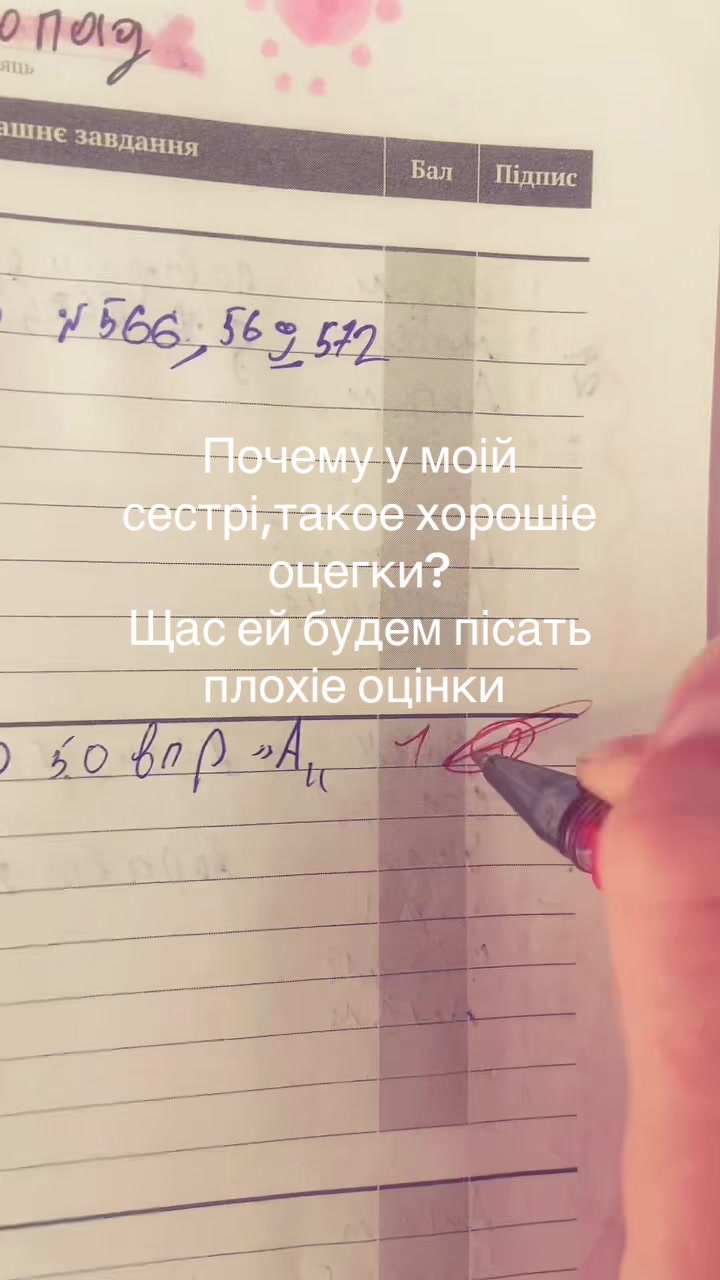 опад
яць
ашнє завдання Бал Підпис
№566, 569, 572
Почему у моій
сестрі,такое хорошіе
оцегки?
Щас ей будем пісать
плохіе оцінки
50 впр „А„ 1